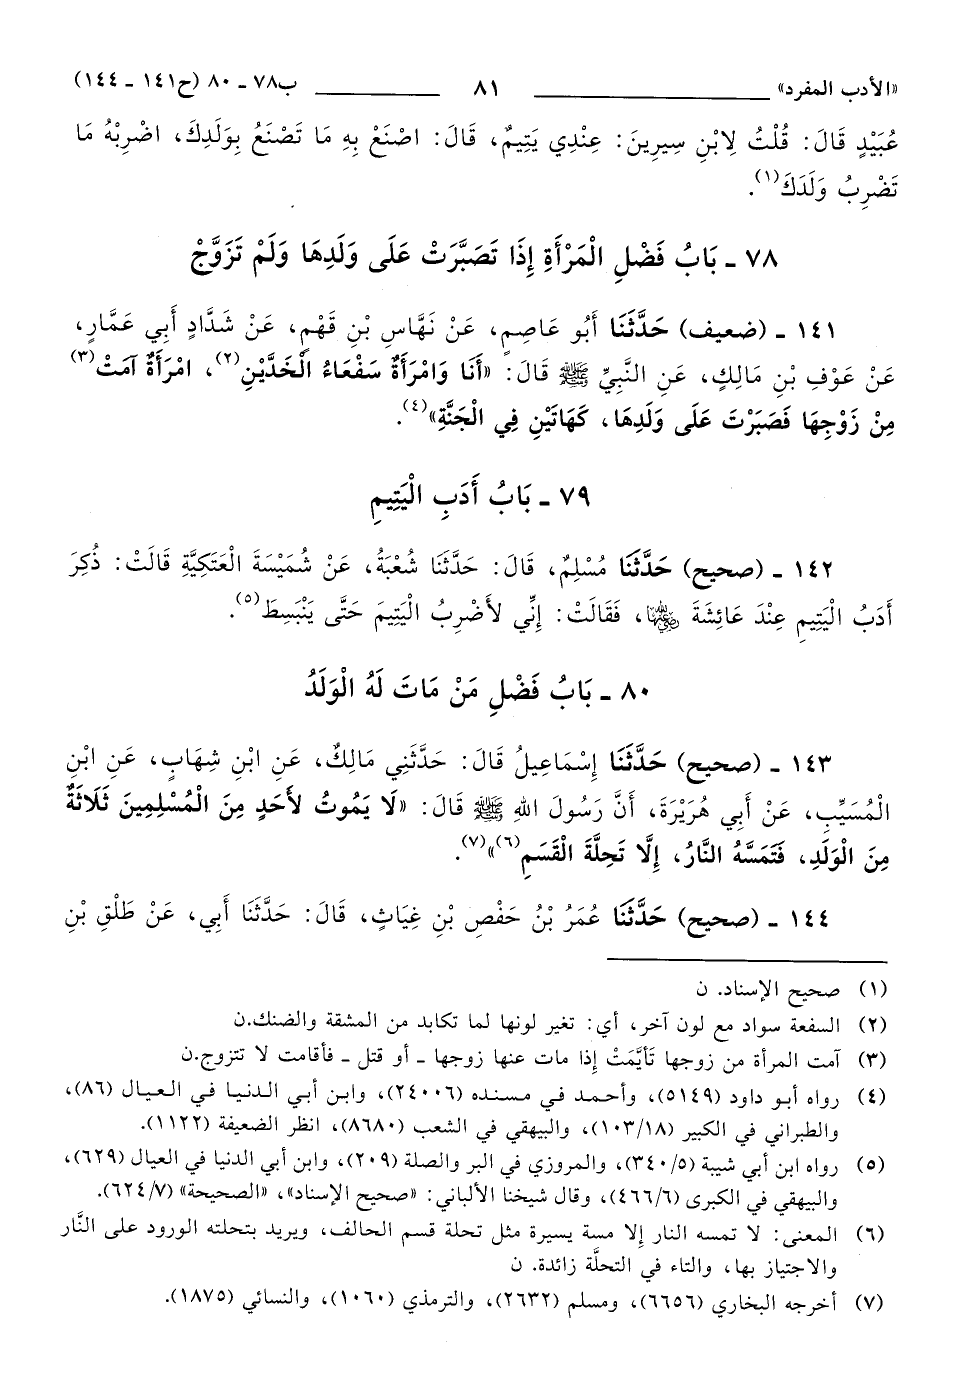 «الأدب المفرد» ٨١ ب٧٨ ـ ٨٠ (ح١٤١ ـ ١٤٤)
عُبَيْدٍ قَالَ: قُلْتُ لِابْنِ سِيرِينَ: عِنْدِي يَتِيمٌ، قَالَ: اصْنَعْ بِهِ مَا تَصْنَعُ بِوَلَدِكَ، اضْرِبْهُ مَا
تَضْرِبُ وَلَدَكَ(١).
٧٨ ـ بَابُ فَضْلِ الْمَرْأَةِ إِذَا تَصَبَّرَتْ عَلَى وَلَدِهَا وَلَمْ تَزَوَّجْ
١٤١ ـ (ضعيف) حَدَّثَنَا أَبُو عَاصِمٍ، عَنْ نَهَّاسِ بْنِ قَهْمٍ، عَنْ شَدَّادٍ أَبِي عَمَّارٍ،
عَنْ عَوْفِ بْنِ مَالِكٍ، عَنِ النَّبِيِّ ﷺ قَالَ: «أَنَا وَامْرَأَةٌ سَفْعَاءُ الْخَدَّيْنِ(٢)، امْرَأَةٌ آمَتْ(٣)
مِنْ زَوْجِهَا فَصَبَرْتَ عَلَى وَلَدِهَا، كَهَاتَيْنِ فِي الْجَنَّةِ»(٤).
٧٩ ـ بَابُ أَدَبِ الْيَتِيمِ
١٤٢ ـ (صحيح) حَدَّثَنَا مُسْلِمٌ، قَالَ: حَدَّثَنَا شُعْبَةُ، عَنْ شُمَيْسَةَ الْعَتَكِيَّةِ قَالَتْ: ذُكِرَ
أَدَبُ الْيَتِيمِ عِنْدَ عَائِشَةَ رضي الله عنها، فَقَالَتْ: إِنِّي لأَضْرِبُ الْيَتِيمَ حَتَّى يَنْبَسِطَ(٥).
٨٠ ـ بَابُ فَضْلِ مَنْ مَاتَ لَهُ الْوَلَدُ
١٤٣ ـ (صحيح) حَدَّثَنَا إِسْمَاعِيلُ قَالَ: حَدَّثَنِي مَالِكٌ، عَنِ ابْنِ شِهَابٍ، عَنِ ابْنِ
الْمُسَيِّبِ، عَنْ أَبِي هُرَيْرَةَ، أَنَّ رَسُولَ اللهِ ﷺ قَالَ: «لَا يَمُوتُ لأَحَدٍ مِنَ الْمُسْلِمِينَ ثَلَاثَةٌ
مِنَ الْوَلَدِ، فَتَمَسَّهُ النَّارُ، إِلَّا تَحِلَّةَ الْقَسَمِ(٦)»(٧).
١٤٤ ـ (صحيح) حَدَّثَنَا عُمَرُ بْنُ حَفْصِ بْنِ غِيَاثٍ، قَالَ: حَدَّثَنَا أَبِي، عَنْ طَلْقِ بْنِ
(١) صحيح الإسناد. ن
(٢) السفعة سواد مع لون آخر، أي: تغير لونها لما تكابد من المشقة والضنك.ن
(٣) آمت المرأة من زوجها تَأَيَّمَتْ إذا مات عنها زوجها ـ أو قتل ـ فأقامت لا تتزوج.ن
(٤) رواه أبو داود (٥١٤٩)، وأحمد في مسنده (٢٤٠٠٦)، وابن أبي الدنيا في العيال (٨٦)،
والطبراني في الكبير (١٠٣/١٨)، والبيهقي في الشعب (٨٦٨٠)، انظر الضعيفة (١١٢٢).
(٥) رواه ابن أبي شيبة (٣٤٠/٥)، والمروزي في البر والصلة (٢٠٩)، وابن أبي الدنيا في العيال (٦٢٩)،
والبيهقي في الكبرى (٤٦٦/٦)، وقال شيخنا الألباني: «صحيح الإسناد»، «الصحيحة» (٦٢٤/٧).
(٦) المعنى: لا تمسه النار إلا مسة يسيرة مثل تحلة قسم الحالف، ويريد بتحلته الورود على النَّار
والاجتياز بها، والتاء في التحلَّة زائدة. ن
(٧) أخرجه البخاري (٦٦٥٦)، ومسلم (٢٦٣٢)، والترمذي (١٠٦٠)، والنسائي (١٨٧٥).